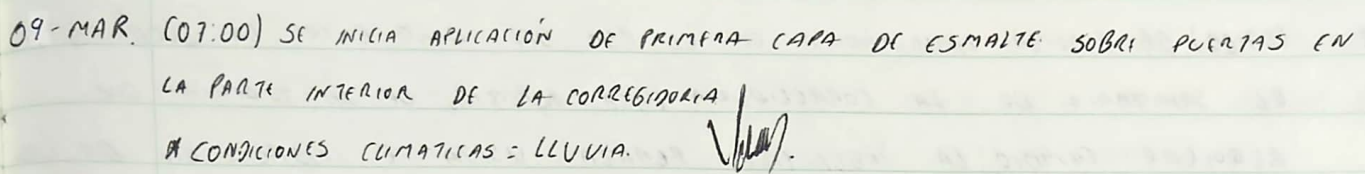 09-MAR. (07:00) SE INICIA APLICACIÓN DE PRIMERA CAPA DE ESMALTE SOBRE PUERTAS EN
LA PARTE INTERIOR DE LA CORREGIDORIA
* CONDICIONES CLIMATICAS = LLUVIA.